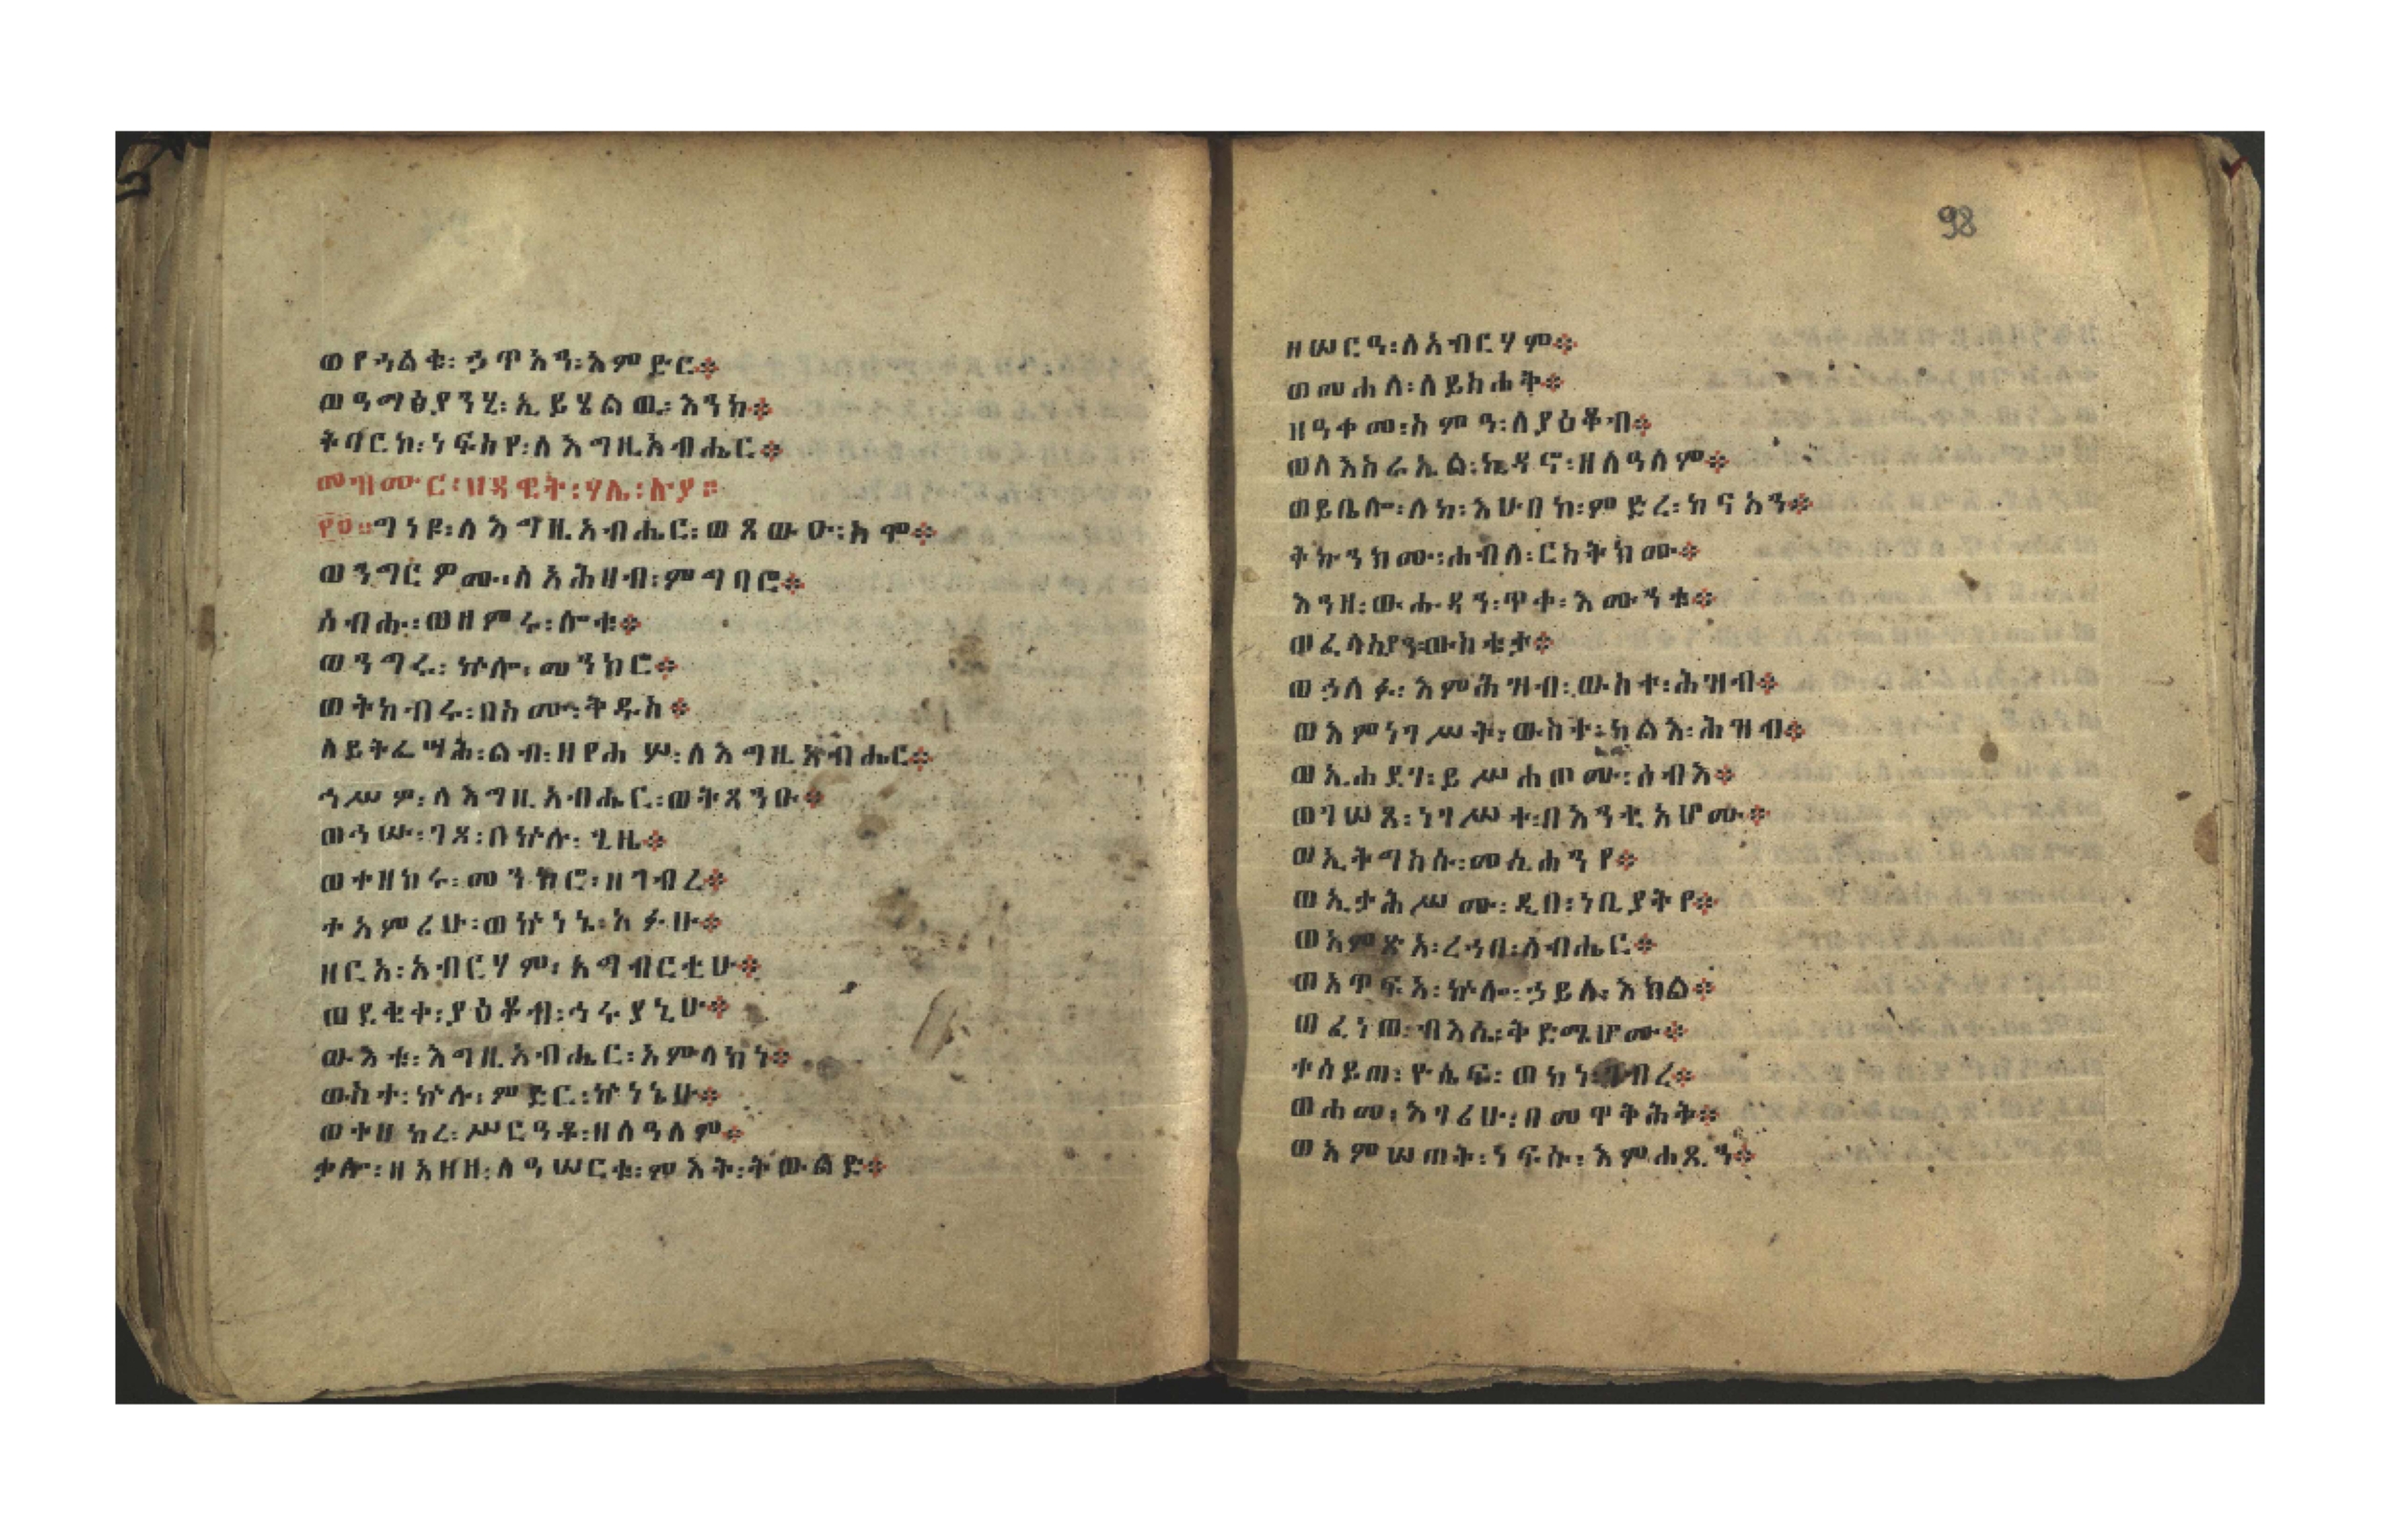 ወየኀልቁ፡ኃጥአን፡እምድር፨
ወዓማፅያንሂ፡ኢይሄልዉ፡እንከ፨
ትባርክ፡ነፍስየ፡ለእግዚአብሔር፨
መዝሙር፡ዘዳዊት፡ሃሌ፡ሉያ።
፻፬።ግነዩ፡ለእግዚአብሔር፡ወጸውዑ፡ስሞ፨
ወንግርዎሙ፡ለአሕዛብ፡ምግባሮ፨
ሰብሑ፡ወዘምሩ፡ሎቱ፨
ወንግሩ፡ኵሎ፡መንክሮ፨
ወትከብሩ፡በስሙ፡ቅዱስ፨
ለይትፌሣሕ፡ልብ፡ዘየሐሦ፡ለእግዚአብሔር፨
ኅሥዎ፡ለእግዚአብሔር፡ወትጸንዑ፨
ወኅሡ፡ገጾ፡በኵሉ፡ጊዜ፨
ወተዘከሩ፡መንክሮ፡ዘገብረ፨
ተአምረሁ፡ወኵነኔ፡አፉሁ፨
ዘርአ፡አብርሃም፡አግብርቲሁ፨
ወደቂቀ፡ያዕቆብ፡ኅሩያኒሁ፨
ውእቱ፡እግዚአብሔር፡አምላክነ፨
ውስተ፡ኵሉ፡ምድር፡ኵነኔሁ፨
ወተዘከረ፡ሥርዓቶ፡ዘለዓለም፨
ቃሎ፡ዘአዘዘ፡ለዓሠርቱ፡ምእት፡ትውልድ፨
98
ዘሠርዓ፡ለአብርሃም፨
ወመሐለ፡ለይስሐቅ፨
ዘዓቀመ፡ስምዓ፡ለያዕቆብ፨
ወለእስራኤል፡ኪዳኖ፡ዘለዓለም፨
ወይቤሎ፡ለከ፡እሁበከ፡ምድረ፡ከናአን፨
ትኩንክሙ፡ሐብለ፡ርስትክሙ፨
እንዘ፡ውሑዳን፡ጥቀ፡እሙንቱ፨
ወፈላስያን፡ውስቴታ፨
ወኃለፉ፡እምሕዝብ፡ውስተ፡ሕዝብ፨
ወእምነገሥት፡ውስተ፡ካልእ፡ሕዝብ፨
ወኢሐደገ፡ይሥሐጦሙ፡ሰብእ፨
ወገሠጸ፡ነገሥተ፡በእንቲአሆሙ፨
ወኢትግስሱ፡መሲሐንየ፨
ወኢታሕሥሙ፡ዲበ፡ነቢያትየ፨
ወአምጽአ፡ረኀበ፡ለብሔር፨
ወአጥፍአ፡ኵሎ፡ኃይለ፡እክል፨
ወፈነወ፡ብእሴ፡ቅድሜሆሙ፨
ተሰይጠ፡ዮሴፍ፡ወኮነ፡ገብረ፨
ወሐመ፡እግረሁ፡በመዋቅሕት፨
ወአምሠጠት፡ነፍሱ፡እምሐጺን፨